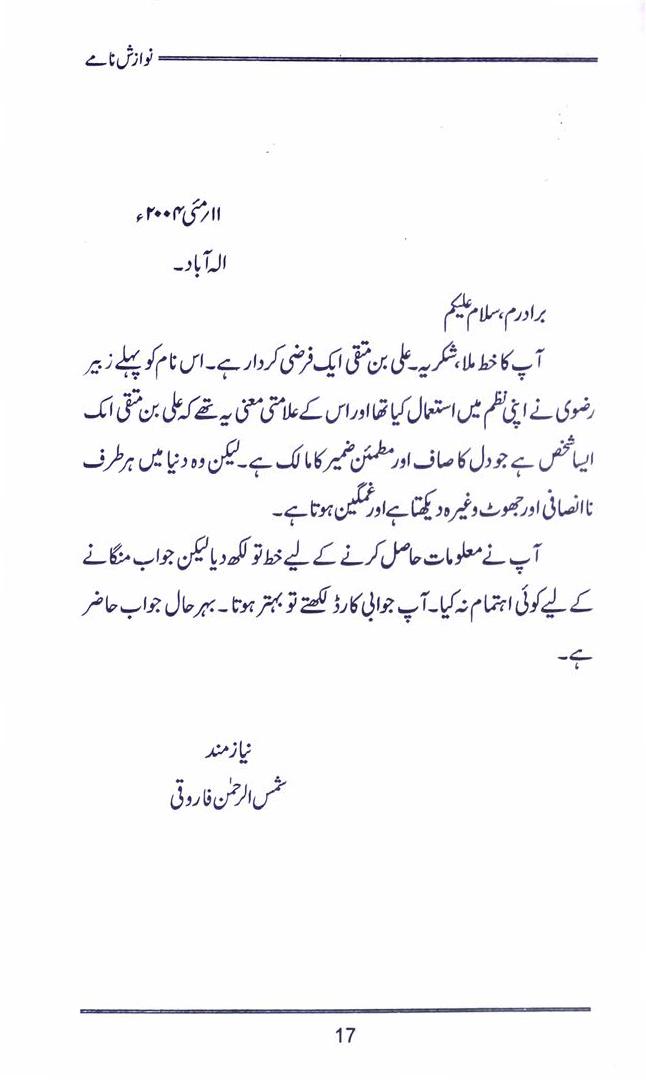 نوازش نامے
۱۱؍مئی ۲۰۰۴ء
الہ آباد۔
برادرم، سلام علیکم
آپ کا خط ملا، شکریہ۔ علی بن متقی ایک فرضی کردار ہے۔ اس نام کو پہلے زبیر
رضوی نے اپنی نظم میں استعمال کیا تھا اور اس کے علامتی معنی یہ تھے کہ علی بن متقی اک
ایسا شخص ہے جو دل کا صاف اور مطمئن ضمیر کا مالک ہے۔ لیکن وہ دنیا میں ہر طرف
نا انصافی اور جھوٹ وغیرہ دیکھتا ہے اور غمگین ہوتا ہے۔
آپ نے معلومات حاصل کرنے کے لیے خط تو لکھ دیا لیکن جواب منگانے
کے لیے کوئی اہتمام نہ کیا۔ آپ جوابی کارڈ لکھتے تو بہتر ہوتا۔ بہر حال جواب حاضر
ہے۔
نیاز مند
شمس الرحمٰن فاروقی
17